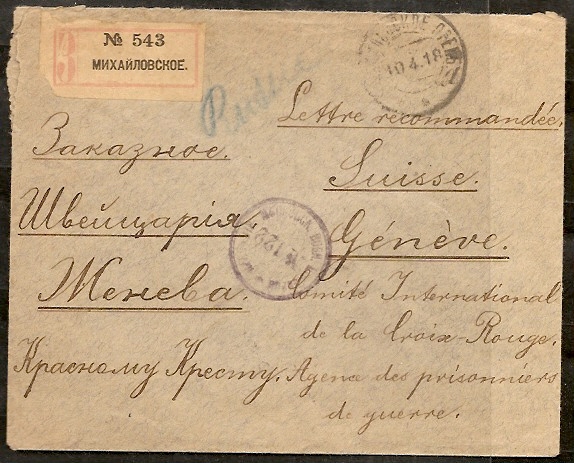 № 543
МИХАЙЛОВСКОЕ.
10.4.18
Заказное.
Швейцарія
Женева.
Красному Кресту.
Lettre recommandée,
Suisse.
Génève.
Comité International
de la Croix-Rouge.
Agence des prisonniers
de guerre.